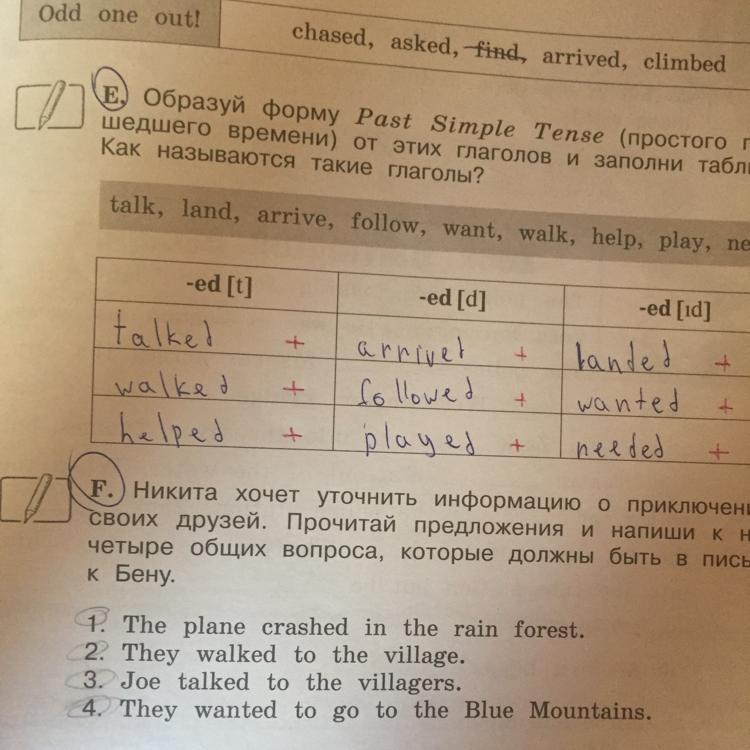 Odd one out!
chased, asked, find, arrived, climbed
E. Образуй форму Past Simple Tense (простого п
шедшего времени) от этих глаголов и заполни табли
Как называются такие глаголы?
talk, land, arrive, follow, want, walk, help, play, ne
-ed [t] -ed [d] -ed [ɪd]
talked + arrived + landed +
walked + followed + wanted +
helped + played + needed +
F. Никита хочет уточнить информацию о приключени
своих друзей. Прочитай предложения и напиши к н
четыре общих вопроса, которые должны быть в пись
к Бену.
1. The plane crashed in the rain forest.
2. They walked to the village.
3. Joe talked to the villagers.
4. They wanted to go to the Blue Mountains.